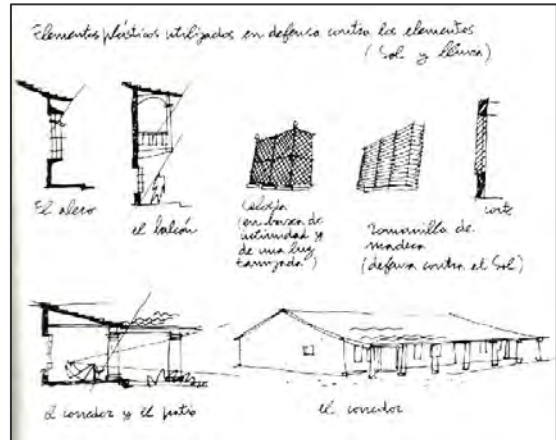 Elementos plásticos utilizados en defensa contra los elementos
(Sol y lluvia)
El alero
el balcón
Celosía
(en busca de
intimidad y
de una luz
tamizada)
Romanilla de
madera
(defensa contra el Sol)
corte
el corredor y el patio
el corredor